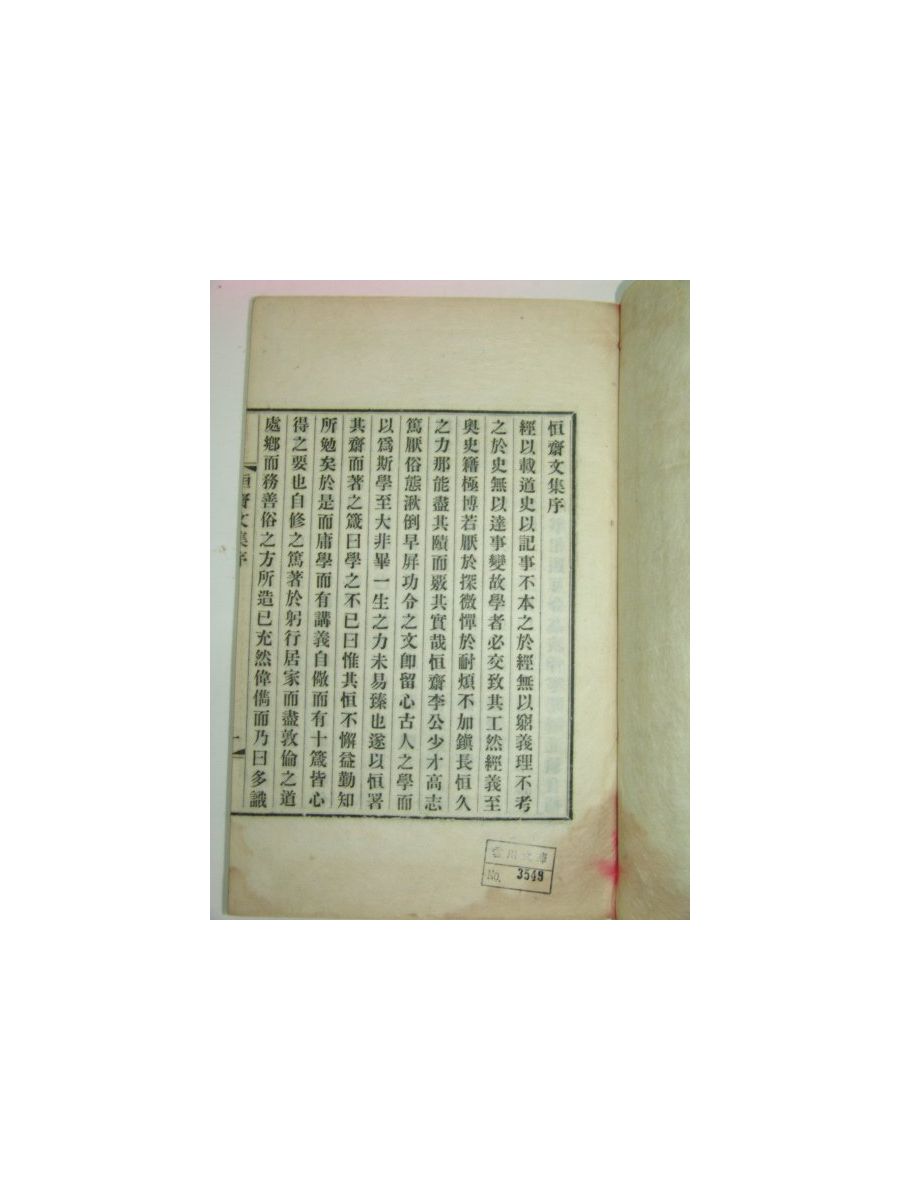 恒齋文集序
經以載道史以記事不本之於經無以窮義理不考
之於史無以達事變故學者必交致其工然經義至
奧史籍極博若厭於探微憚於耐煩不加鎭長恒久
之力那能盡其賾而覈其實哉恒齋李公少才高志
篤厭俗態湫倒早屛功令之文卽留心古人之學而
以爲斯學至大非畢一生之力未易臻也遂以恒署
其齋而著之箴曰學之不已曰惟其恒不懈益勤知
所勉矣於是而庸學而有講義自儆而有十箴皆心
得之要也自修之篤著於躬行居家而盡敦倫之道
處鄕而務善俗之方所造已充然偉儁而乃曰多識
恒齋文集序
一
川文庫
No. 3549